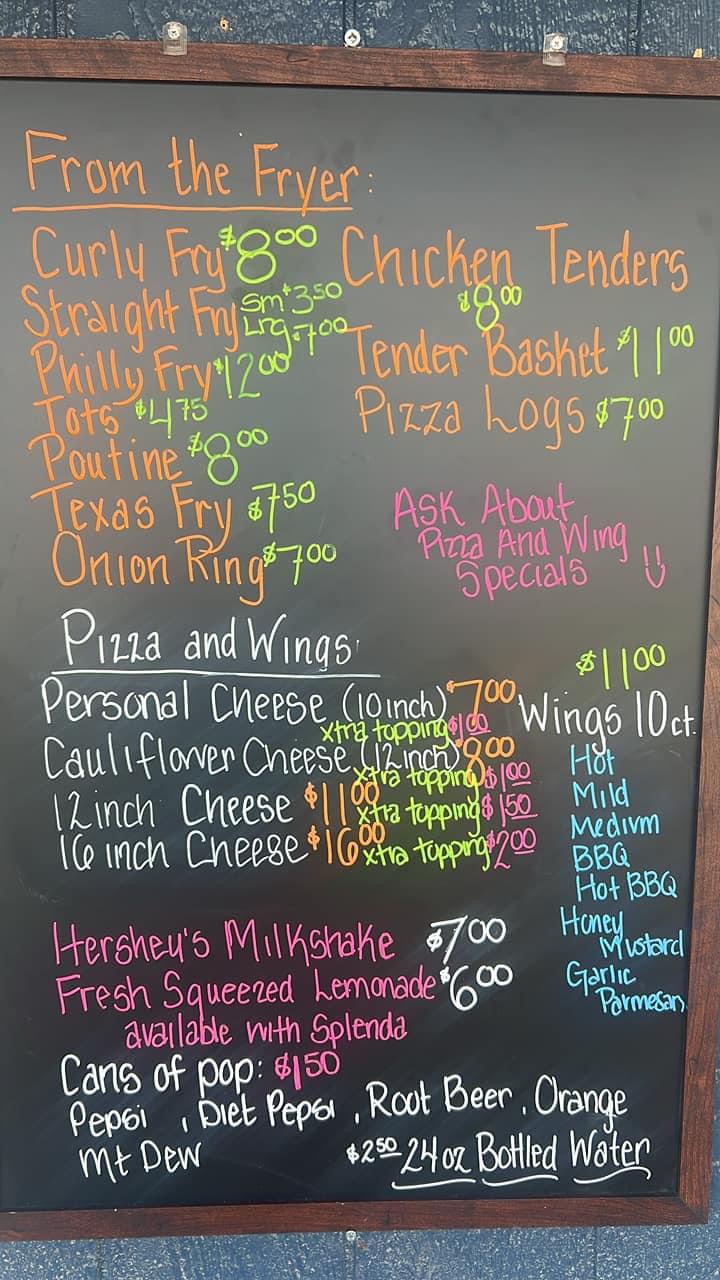 From the Fryer:
Curly Fry $8.00
Straight Fry Sm $3.50
Lrg $7.00
Philly Fry $12.00
Tots $4.75
Poutine $8.00
Texas Fry $7.50
Onion Ring $7.00
Chicken Tenders
$8.00
Tender Basket $11.00
Pizza Logs $7.00
Ask About
Pizza And Wing
Specials
Pizza and Wings:
Personal Cheese (10 inch) $7.00
xtra topping $1.00
Cauliflower Cheese (12 inch) $8.00
xtra topping $1.00
12 inch Cheese $11.00
xtra topping $1.50
16 inch Cheese $16.00 xtra topping $2.00
$11.00
Wings 10ct.
Hot
Mild
Medium
BBQ
Hot BBQ
Honey
Mustard
Garlic
Parmesan
Hershey's Milkshake $7.00
Fresh Squeezed Lemonade $6.00
available with Splenda
Cans of pop: $1.50
Pepsi , Diet Pepsi , Root Beer , Orange
Mt Dew
$2.50 24oz Bottled Water